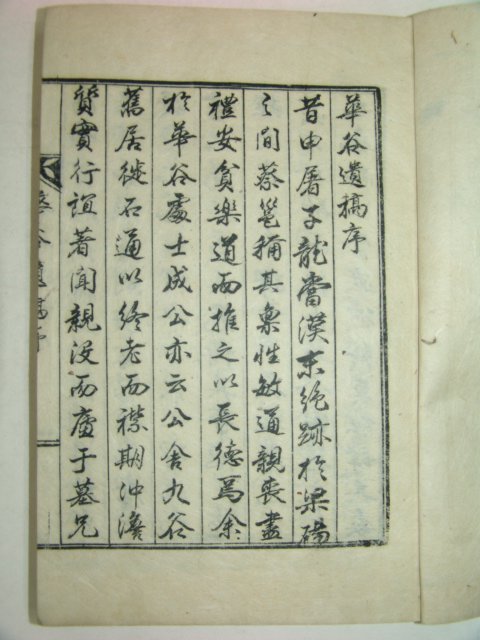 華谷遺稿序
昔申屠子龍當漢末絶跡於梁碭
之間蔡邕稱其稟性敏通親喪盡
禮安貧樂道而推之以長德焉余
於華谷處士成公亦云公舍九谷
舊居徙石通以終老而襟期沖澹
質實行誼著聞親沒而廬于墓兄
華谷遺稿序